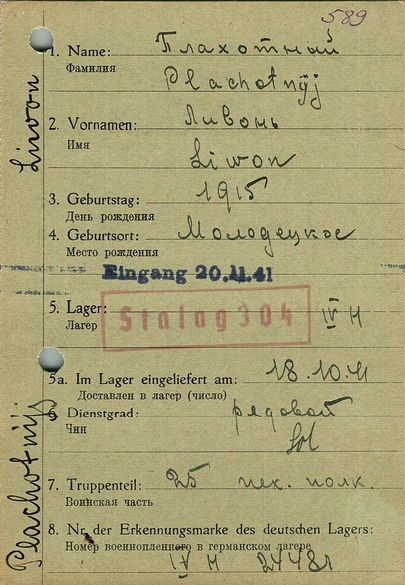 589
1. Name: Плахотный
Фамилия
Plachotnÿj
2. Vornamen: Ливонь
Имя
Liwon
3. Geburtstag: 1915
День рождения
4. Geburtsort: Молодецкое
Место рождения
Eingang 20.11.41
5. Lager: Stalag 304 IV H
Лагер
5a. Im Lager eingeliefert am: 18.10.41
Доставлен в лагер (число)
6. Dienstgrad: рядовой
Чин Sol
7. Truppenteil: 25 пех. полк.
Воинская часть
8. Nr. der Erkennungsmarke des deutschen Lagers:
Номер военнопленного в германском лагере
IV H
Liwon
Plachotnÿj